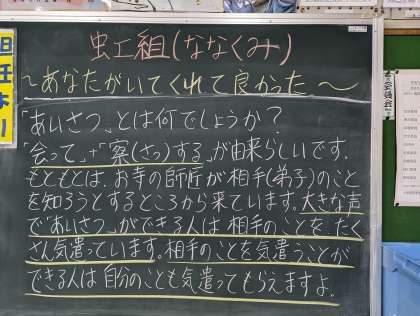 虹組(ななくみ)
～あなたがいてくれて良かった～
「あいさつ」とは何でしょうか?
「会って」+「察(さっ)する」が由来らしいです。
もともとは、お寺の師匠が相手(弟子)のこと
を知ろうとするところから来ています。大きな声
で「あいさつ」ができる人は相手のことをたく
さん気遣っています。相手のことを気遣うことが
できる人は自分のことも気遣ってもらえますよ。
担任より